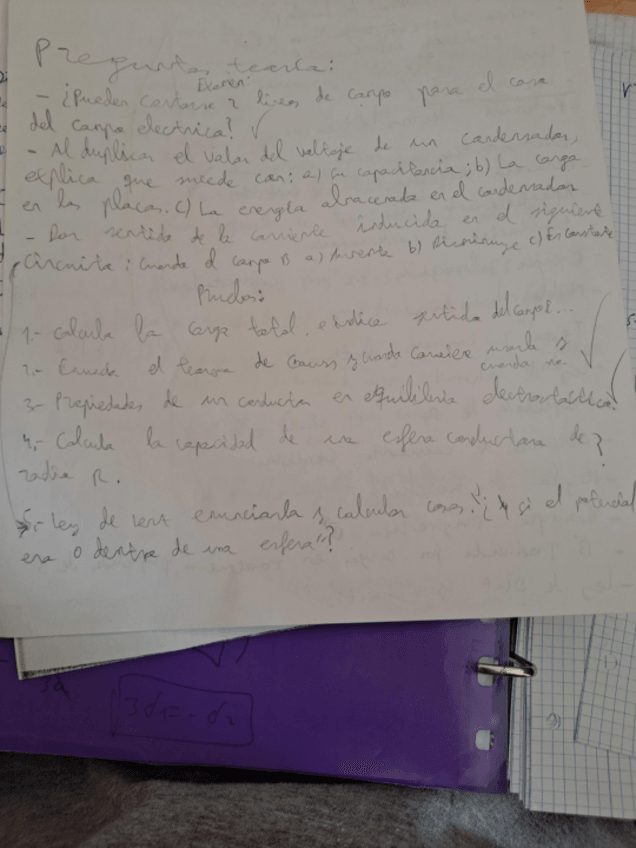 Preguntas teoría:
Examen:
- ¿Pueden cortarse 2 líneas de campo para el caso
del campo eléctrico? ✓
- Al duplicar el valor del voltaje de un condensador,
explica que sucede con: a) Su capacitancia; b) La carga
en las placas. c) La energía almacenada en el condensador
- Dar sentido de la corriente inducida en el siguiente
circuito: cuando el campo B a) Aumenta b) Disminuye c) Es constante
Pruebas:
1.- Calcula la carga total e indica sentido del campo E...
2.- Enuncia el teorema de Gauss y cuando conviene usarlo y
cuando no.
3.- Propiedades de un conductor en equilibrio electrostático.
4.- Calcula la capacidad de una esfera conductora de
radio R.
?
5.- Ley de Lenz enunciarla y calcular cosas. ¿ si el potencial
era 0 dentro de una esfera"?
3d1=-d2